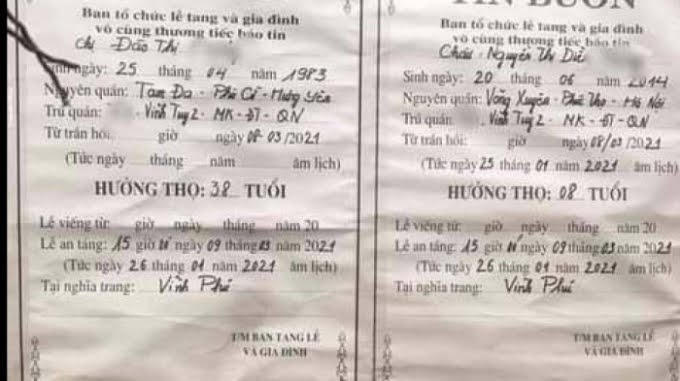 Ban tổ chức lễ tang và gia đình
vô cùng thương tiếc báo tin
Chị Đào Thị
Sinh ngày: 25 tháng 04 năm 1983
Nguyên quán: Tam Đa - Phù Cừ - Hưng Yên
Trú quán: Vĩnh Tuy 2 - MK - ĐT - QN
Từ trần hồi: giờ ngày 08-03/2021
(Tức ngày tháng năm âm lịch)
HƯỞNG THỌ: 38 TUỔI
Lễ viếng từ: giờ ngày tháng năm 20
Lễ an táng: 15 giờ ngày 09 tháng 03 năm 2021
(Tức ngày 26 tháng 01 năm 2021 âm lịch)
Tại nghĩa trang: Vĩnh Phú
T/M BAN TANG LỄ
VÀ GIA ĐÌNH
TIN BUỒN
Ban tổ chức lễ tang và gia đình
vô cùng thương tiếc báo tin
Cháu - Nguyễn Thị
Sinh ngày: 20 tháng 06 năm 2014
Nguyên quán: Võng Xuyên - Phúc Thọ - Hà Nội
Trú quán: Vĩnh Tuy 2 - MK - ĐT - QN
Từ trần hồi: giờ ngày 08/03/2021
(Tức ngày 25 tháng 01 năm 2021 âm lịch)
HƯỞNG THỌ: 08 TUỔI
Lễ viếng từ: giờ ngày tháng năm 20
Lễ an táng: 15 giờ ngày 09 tháng 03 năm 2021
(Tức ngày 26 tháng 01 năm 2021 âm lịch)
Tại nghĩa trang: Vĩnh Phú
T/M BAN TANG LỄ
VÀ GIA ĐÌNH